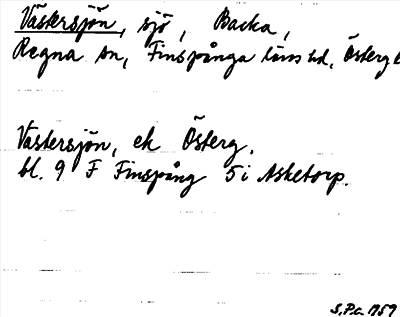 Västersjön, sjö, Backa,
Regna sn, Finspånga läns hd, Österg
Västersjön, ek Österg.
bl. 9 F Finspång 5i Asketorp.
S.P.a. 1959